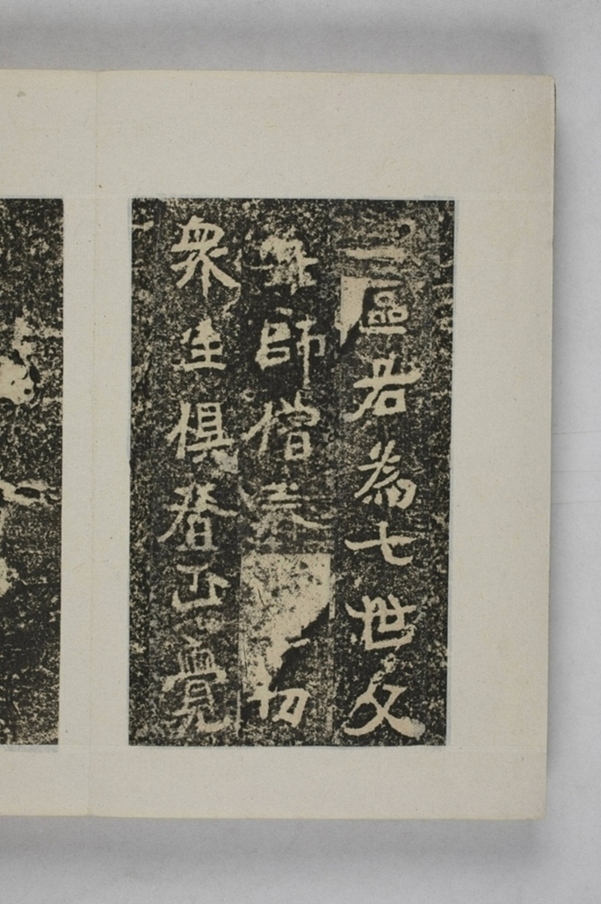 區若為七世父
母師僧一切
衆生俱登正覺